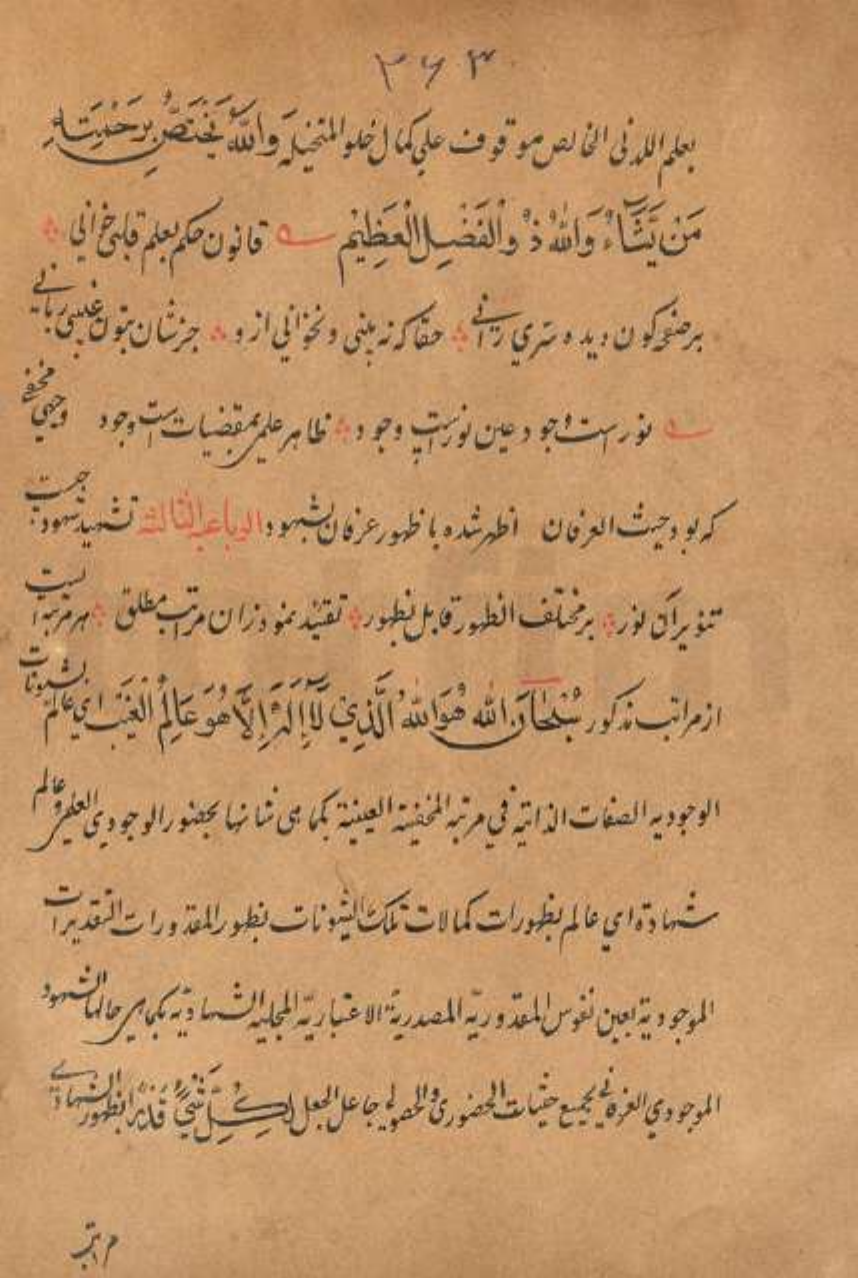 ۳۶۳
بعلم اللدنی الخالص موقوف علی کمال خلو المتخیلة وَاللّٰهُ یَخْتَصُّ بِرَحْمَتِهٖ
مَنْ یَّشَآءُ وَاللّٰهُ ذُو الْفَضْلِ الْعَظِیْمِ قانون حکم بعلم قلبی خوانی
بر صفحه کون دیده سری رانی حقا که نه بینی و نخوانی از و جز شان بتون غیبی ربانی
نور است وجود عین نور است وجود ظاهر علمی بمقضیات است وجود وجهی مخفی
که بود حیث العرفان اظهر شده با ظهور عرفان بشهود الرباعیه الثالثه تشهید شهود جست
تنویر آن نور بر مختلف الظهور قابل بظهور تقیید نمود زان مراتب مطلق هر مرتبه است
از مراتب مذکور سُبْحَانَ اللّٰه هُوَ اللّٰهُ الَّذِیْ لَآ اِلٰهَ اِلَّا هُوَ عَالِمُ الْغَیْبِ ای عالم بشیونات
الوجودیه الصفات الذاتیة فی مرتبه المخفیة العینیة بکماهی شانها بحضور الوجودی العلمی و عالم
شهادة ای عالم بظهورات کمالات تلک الشیونات بظهور المقدورات التقدیرات
الموجودیة بعین نفوس المقدوریّه المصدریة الاعتباریّه المجلیه الشهادیّه بکماهی حالها الشهود
الموجودی العرفانی بجمیع حثیات الحضوری والحصولی جاعل الجعل لِکُلِّ شَیْءٍ قَدْرًا بظهور الشهادی
مراتب